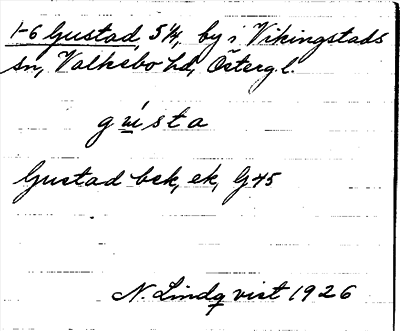 1-6 Gustad, 3 1/4, by i Vikingstads
sn, Valkebo hd, Östergl.
gùsta
Gustad bek, ek, G 45
N. Lindqvist 1926